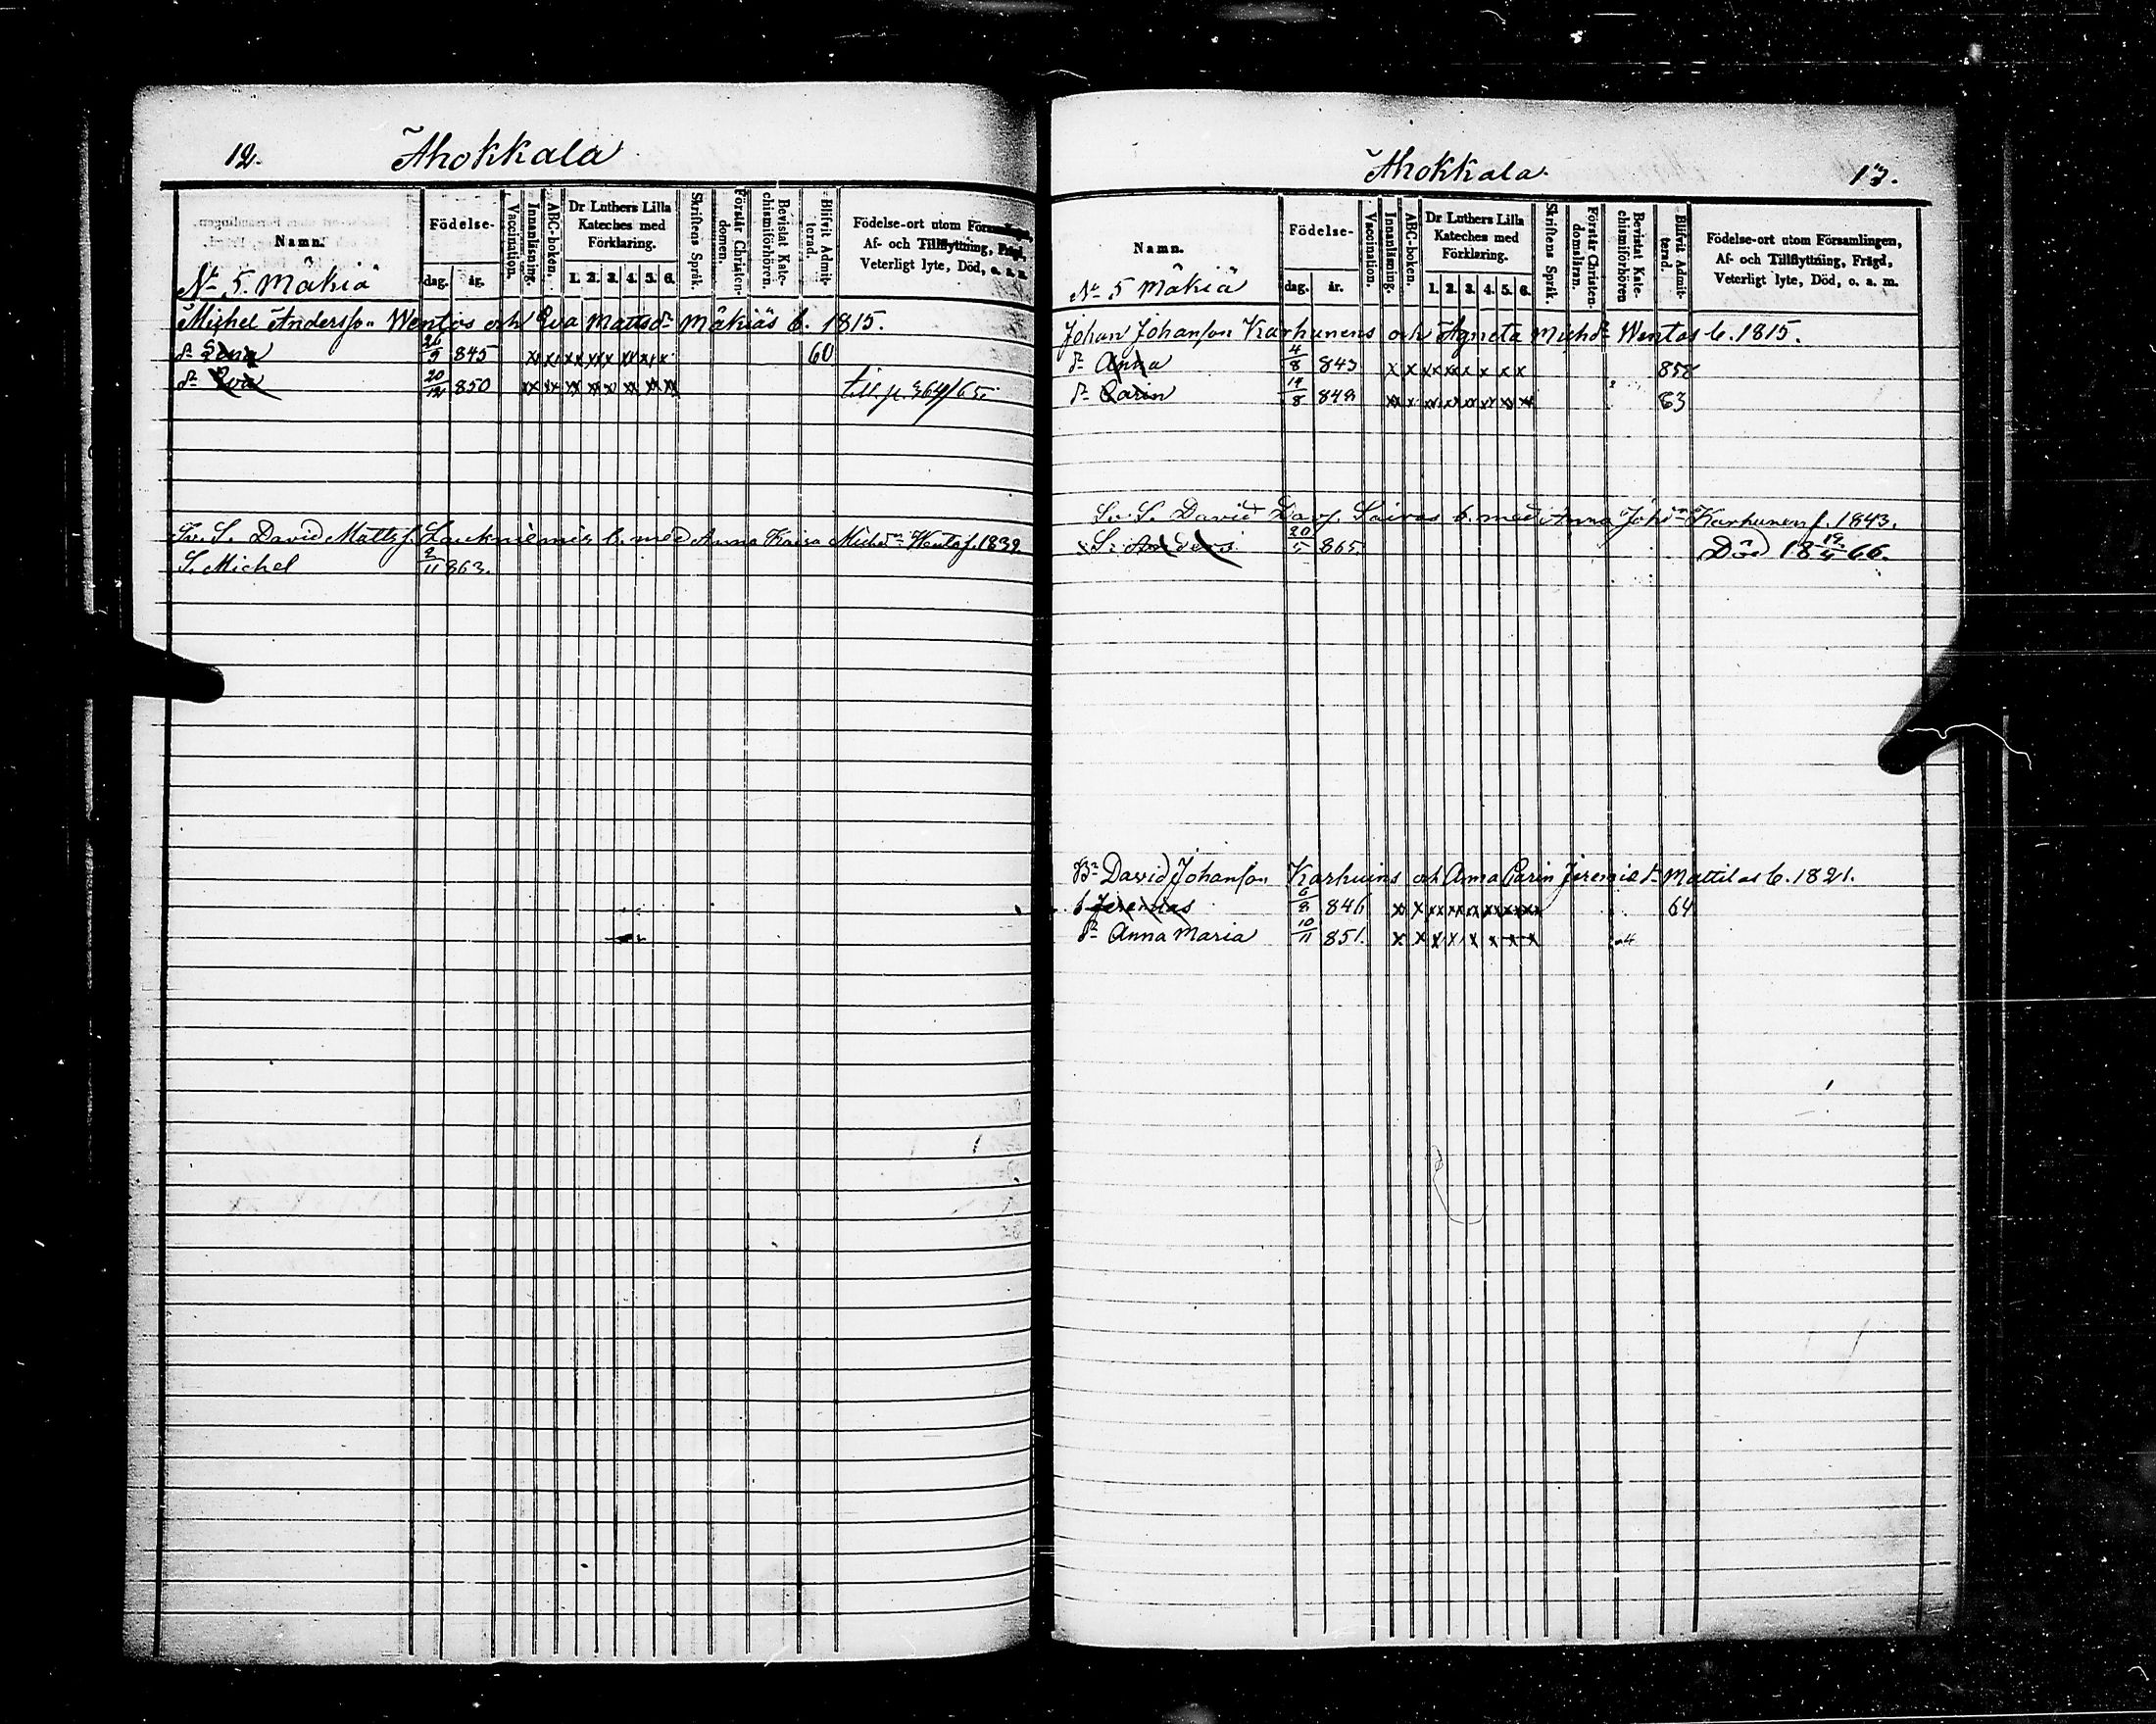 12. Ahokkala
Namn.
Födelse-
dag. år.
Vaccination.
Innanläsning.
ABC-boken.
Dr Luthers Lilla
Kateches med
Förklaring.
1. 2. 3. 4. 5. 6.
Skriftens Språk.
Förstår Christen-
domen.
Bevistat Kate-
chismiförhören.
Blifvit Admit-
terad.
Födelse-ort utom Församlingen,
Af- och Tillflyttning, Frägd,
Veterligt lyte, Död, o. a. m.
No 5. Mäkiä
Michel Andersson Wentos och Eva Mattsdr Mäkiäs b. 1815.
dr Lena 26/9 845 x xx xx xxx xx xx 60
dr Eva 20/12 850 xx xx xx xx x xx xx xx till. p. 364/65.
Sv. S. David Mattsf. Laukniemis b. med Anna Kaisa Michdr Wentof. 1839
S. Michel 2/11 863.
Ahokkala. 13.
Namn.
Födelse-
dag. år.
Vaccination.
Innanläsning.
ABC-boken.
Dr Luthers Lilla
Kateches med
Förklaring.
1. 2. 3. 4. 5. 6.
Skriftens Språk.
Förstår Christen-
domsläran.
Bevistat Kate-
chismiförhören
Blifvit Admit-
terad.
Födelse-ort utom Församlingen,
Af- och Tillflyttning, Frägd,
Veterligt lyte, Död, o. a. m.
No 5 Mäkiä
Johan Johansson Karhunens och Agneta Michdr Wentas b. 1815.
dr Anna 4/8 843 x x xx xx x x x x 858
dr Carin 14/8 848 xx x xx xx xx xx xx xx 63
Sv. S. David Davf. Soivos b. med Anna Johdr Karhunen f. 1843.
S. Anders 20/5 865. Död 18 19/4 66.
Br David Johansson Karhuins och Anna Carin Jeremiedr Mattilas b. 1821.
s Jeremias 6/8 846 xx x xx xx xx xx xx xx 64
dr Anna Maria 10/11 851. x x x x x x x x 4